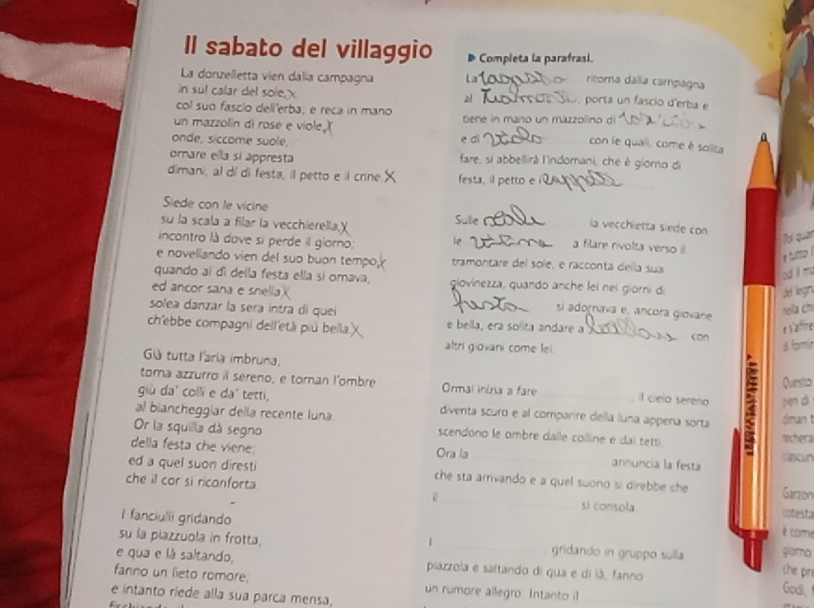 Il sabato del villaggio
La donzelletta vien dalla campagna
in sul calar del sole,
col suo fascio dell'erba; e reca in mano
un mazzolin di rose e viole,
onde, siccome suole,
ornare ella si appresta
dimani, al dí di festa, il petto e il crine.
Siede con le vicine
su la scala a filar la vecchierella,
incontro là dove si perde il giorno;
e novellando vien del suo buon tempo,
quando ai dì della festa ella si ornava,
ed ancor sana e snella
solea danzar la sera intra di quei
ch'ebbe compagni dell'età più bella.
Già tutta l'aria imbruna,
torna azzurro il sereno, e tornan l'ombre
giù da' colli e da' tetti,
al biancheggiar della recente luna.
Or la squilla dà segno
della festa che viene;
ed a quel suon diresti
che il cor si riconforta.
I fanciulli gridando
su la piazzuola in frotta,
e qua e là saltando,
fanno un lieto romore;
e intanto riede alla sua parca mensa,
Completa la parafrasi.
La ragazza ritorna dalla campagna
al tramonto; porta un fascio d'erba e
tiene in mano un mazzolino di
e di viole con le quali, come è solita
fare, si abbellirà l'indomani, che è giorno di
festa, il petto e i
Sulle scale la vecchietta siede con
le vicine a filare rivolta verso il
tramontare del sole, e racconta della sua
giovinezza, quando anche lei nei giorni di
festa si adornava e, ancora giovane
e bella, era solita andare a ballare con
altri giovani come lei.
Ormai inizia a fare , il cielo sereno
diventa scuro e al comparire della luna appena sorta
scendono le ombre dalle colline e dai tetti.
Ora la annuncia la festa
che sta arrivando e a quel suono si direbbe che
il si consola.
I gridando in gruppo sulla
piazzola e saltando di qua e di là, fanno
un rumore allegro. Intanto il
Questo
Garzon